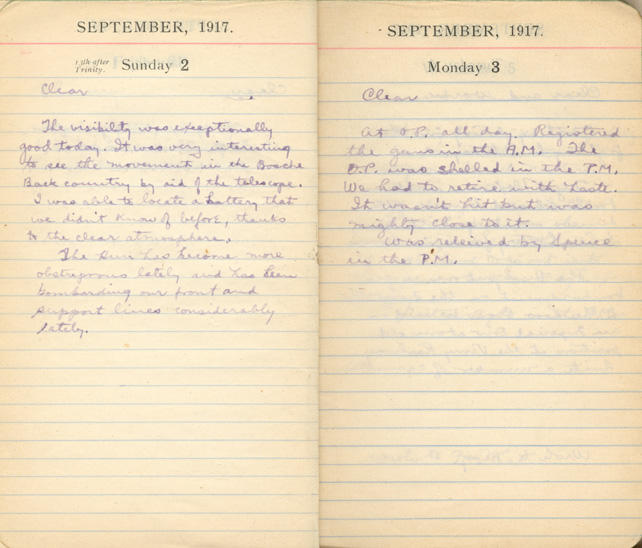 SEPTEMBER, 1917.
13th after Trinity. Sunday 2
Clear
The visibilty was exceptionally
good today. It was very interesting
to see the movement in the Bosche
Back country by aid of the telescope.
I was able to locate a battery that
we didn't know of before, thanks
to the clear atmosphere.
The Hun has become more
obstreperous lately and has been
bombarding our front and
support lines considerably
lately.
SEPTEMBER, 1917.
Monday 3
Clear
At O.P. all day. Registered
the guns in the A.M. The
O.P. was shelled in the P.M.
We had to retire with haste.
It wasn't hit but was
mighty close to it.
Was releived by Spence
in the P.M.